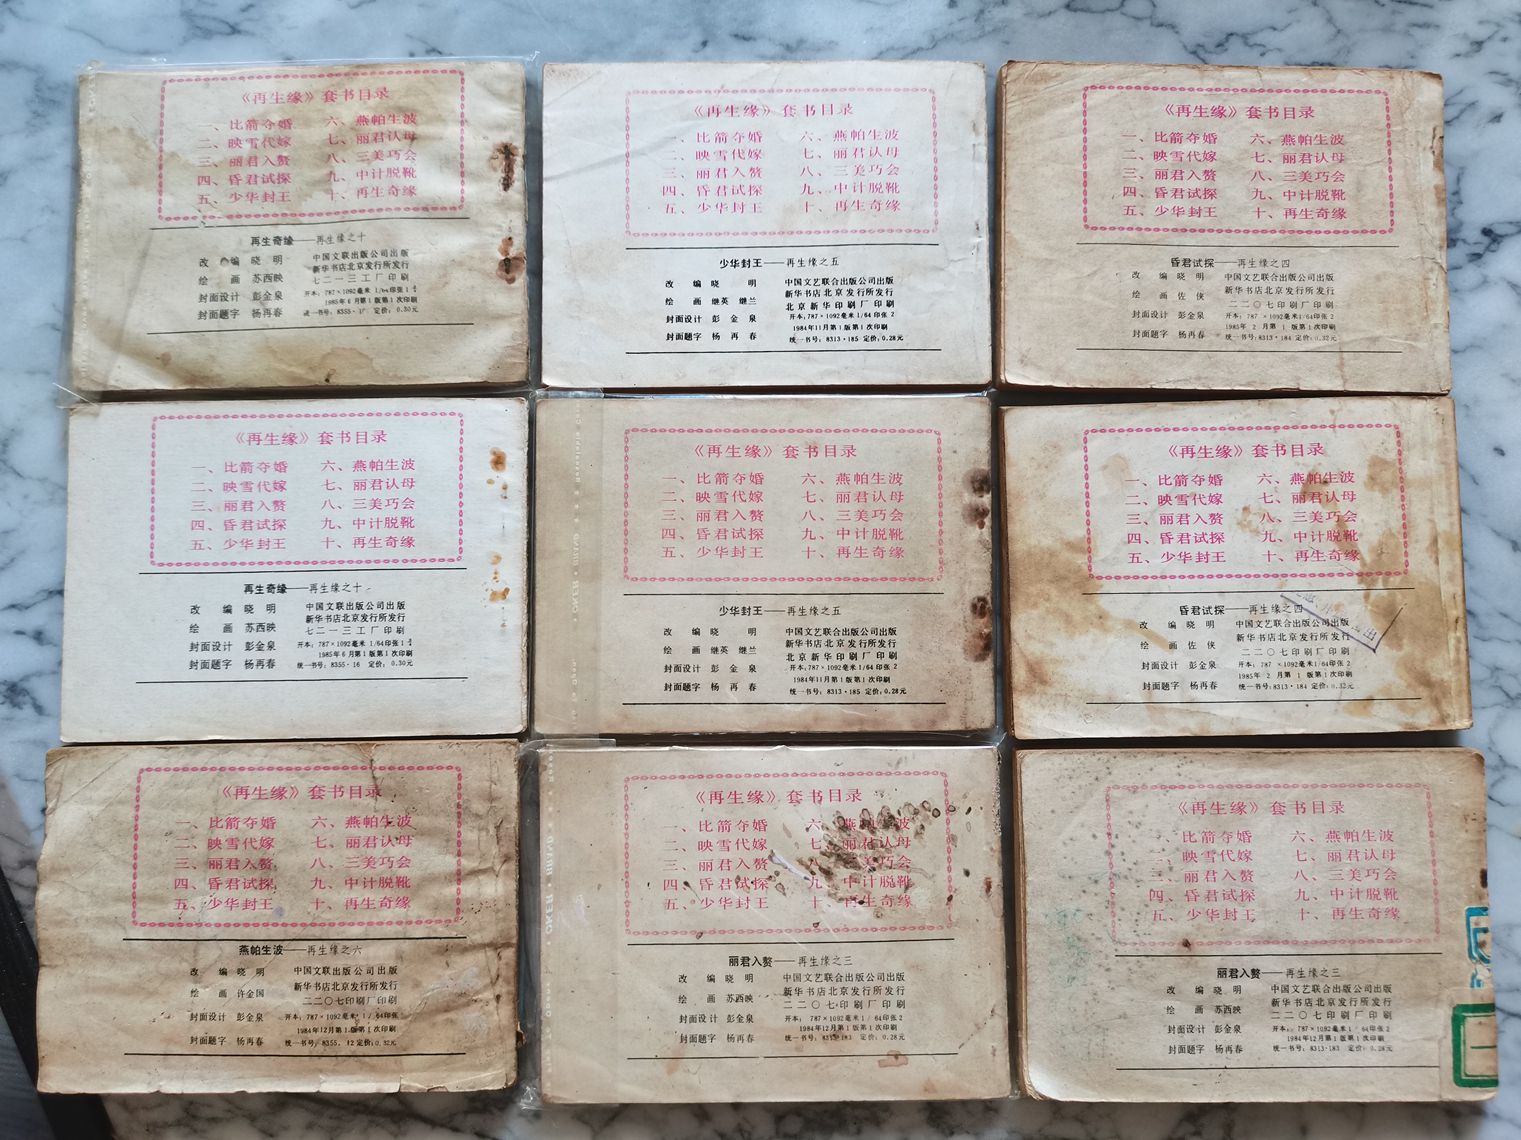 《再生缘》套书目录
一、比箭夺婚 六、燕帕生波
二、映雪代嫁 七、丽君认母
三、丽君入赘 八、三美巧会
四、昏君试探 九、中计脱靴
五、少华封王 十、再生奇缘
再生奇缘——再生缘之十
改 编 晓 明 中国文联出版公司出版
新华书店北京发行所发行
绘 画 苏西映 七二一三工厂印刷
封面设计 彭金泉 开本：787×1092毫米 1/64印张 1
1985年6月第1版第1次印刷
封面题字 杨再春 统一书号：8355·1 定价：0.30元
《再生缘》套书目录
一、比箭夺婚 六、燕帕生波
二、映雪代嫁 七、丽君认母
三、丽君入赘 八、三美巧会
四、昏君试探 九、中计脱靴
五、少华封王 十、再生奇缘
少华封王——再生缘之五
改 编 晓 明 中国文艺联合出版公司出版
新华书店北京发行所发行
绘 画 继英 继兰 北京新华印刷厂印刷
封面设计 彭金泉 开本：787×1092毫米1/64印张 2
1984年11月第1版第1次印刷
封面题字 杨再春 统一书号：8313·185 定价：0.28元
《再生缘》套书目录
一、比箭夺婚 六、燕帕生波
二、映雪代嫁 七、丽君认母
三、丽君入赘 八、三美巧会
四、昏君试探 九、中计脱靴
五、少华封王 十、再生奇缘
昏君试探——再生缘之四
改 编 晓 明 中国文艺联合出版公司出版
新华书店北京发行所发行
绘 画 佐 侠 二二〇七印刷厂印刷
封面设计 彭金泉 开本：787×1092毫米1/64印张 2
1985年 2月第 1版第1次印刷
封面题字 杨再春 统一书号：8313·184 定价：0.32元
《再生缘》套书目录
一、比箭夺婚 六、燕帕生波
二、映雪代嫁 七、丽君认母
三、丽君入赘 八、三美巧会
四、昏君试探 九、中计脱靴
五、少华封王 十、再生奇缘
再生奇缘——再生缘之十
改 编 晓 明 中国文联出版公司出版
新华书店北京发行所发行
绘 画 苏西映 七二一三工厂印刷
封面设计 彭金泉 开本：787×1092毫米 1/64印张 1
1985年6月第1版第1次印刷
封面题字 杨再春 统一书号：8355·16 定价：0.30元
《再生缘》套书目录
一、比箭夺婚 六、燕帕生波
二、映雪代嫁 七、丽君认母
三、丽君入赘 八、三美巧会
四、昏君试探 九、中计脱靴
五、少华封王 十、再生奇缘
少华封王——再生缘之五
改 编 晓 明 中国文艺联合出版公司出版
新华书店北京发行所发行
绘 画 继英 继兰 北京新华印刷厂印刷
封面设计 彭金泉 开本：787×1092毫米1/64印张 2
1984年11月第1版第1次印刷
封面题字 杨再春 统一书号：8313·185 定价：0.28元
《再生缘》套书目录
一、比箭夺婚 六、燕帕生波
二、映雪代嫁 七、丽君认母
三、丽君入赘 八、三美巧会
四、昏君试探 九、中计脱靴
五、少华封王 十、再生奇缘
昏君试探——再生缘之四
改 编 晓 明 中国文艺联合出版公司出版
新华书店北京发行所发行
绘 画 佐 侠 二二〇七印刷厂印刷
封面设计 彭金泉 开本：787×1092毫米1/64印张 2
1985年 2月第 1版第1次印刷
封面题字 杨再春 统一书号：8313·184 定价：0.32元
《再生缘》套书目录
一、比箭夺婚 六、燕帕生波
二、映雪代嫁 七、丽君认母
三、丽君入赘 八、三美巧会
四、昏君试探 九、中计脱靴
五、少华封王 十、再生奇缘
燕帕生波——再生缘之六
改 编 晓 明 中国文联出版公司出版
新华书店北京发行所发行
绘 画 许全国 二二〇七印刷厂印刷
封面设计 彭金泉 开本：787×1092毫米1/64印张
1984年12月第1版第1次印刷
封面题字 杨再春 统一书号：8355.12 定价：0.32元
《再生缘》套书目录
一、比箭夺婚 六、燕帕生波
二、映雪代嫁 七、丽君认母
三、丽君入赘 八、三美巧会
四、昏君试探 九、中计脱靴
五、少华封王 十、再生奇缘
丽君入赘——再生缘之三
改 编 晓 明 中国文艺联合出版公司出版
新华书店北京发行所发行
绘 画 苏西映 二二〇七印刷厂印刷
封面设计 彭金泉 开本：787×1092毫米1/64印张 2
1984年12月第1版第1次印刷
封面题字 杨再春 统一书号：8313·183 定价：0.28元
《再生缘》套书目录
一、比箭夺婚 六、燕帕生波
二、映雪代嫁 七、丽君认母
三、丽君入赘 八、三美巧会
四、昏君试探 九、中计脱靴
五、少华封王 十、再生奇缘
丽君入赘——再生缘之三
改 编 晓 明 中国文艺联合出版公司出版
新华书店北京发行所发行
绘 画 苏西映 二二〇七印刷厂印刷
封面设计 彭金泉 开本：787×1092毫米1/64印张 2
1984年12月第1版第1次印刷
封面题字 杨再春 统一书号：8313·183 定价：0.28元